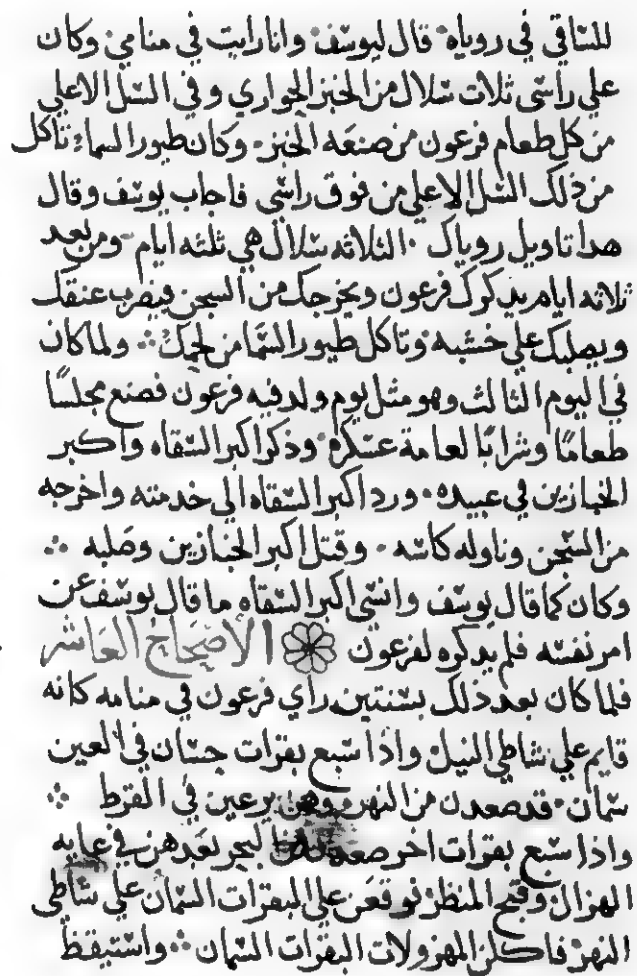 للساقي في روياه· قال ليوسف· وانا رايت في منامي وكان
علي راسي ثلات سلال من الخبز الحواري وفي السل الاعلي
من كل طعام فرعون من صنعه الخبز· وكان طيور السماء تاكل
من ذلك السل الاعلي من فوق راسي فاجاب يوسف وقال
هدا تاويل روياك· الثلاثه سلال هي ثلثه ايام· ومن بعد
ثلاثه ايام يدكرك فرعون ويخرجك من السجن فيضرب عنقك
ويصلبك علي خشبه وتاكل طيور السما من لحمك ∴ ولما كان
في اليوم الثالث وهو مثل يوم ولد فيه فرعون فصنع مجلسًا
طعامًا وشرابًا لعامة عسكره· وذكر اكبر السقاه واكبر
الخبازين في عبيده· ورد اكبر السقاه الي خدمته واخرجه
من السجن وناوله كاسه· وقتل اكبر الخبازين وصلبه ∴
وكان كما قال يوسف وانسي اكبر السقاه ما قال يوسف عن
امر نفسه فلم يدكره لفرعون الاصحاح العاشر
فلما كان بعد ذلك بسنتين راي فرعون في منامه كانه
قايم علي شاطي النيل واذا سبع بقرات حسان في العين
سمان· قد صعدن من النهر وهن يرعين في القرط ∴
واذا سبع بقرات اخر صعدن من البحر بعدهن في غايه
الهزال وقبح المنظر فوقعن علي البقرات السمان علي شاطي
النهر فاكلن المهزولات البقرات السمان ∴ واستيقظ